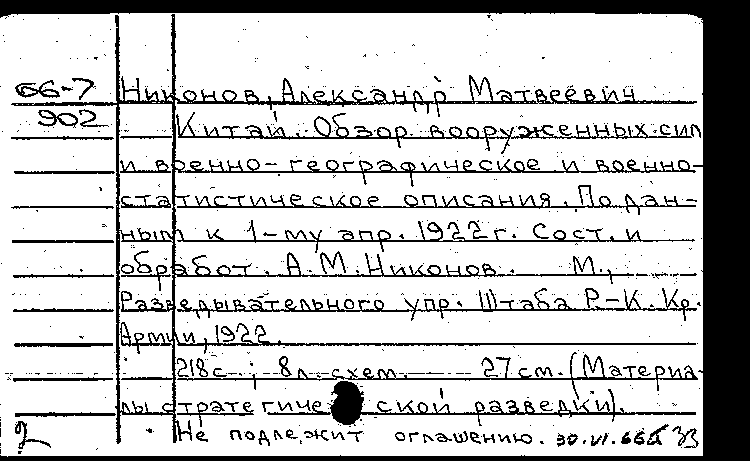 66-7 Никонов, Александр Матвеевич
902 Китай. Обзор вооруженных сил
и военно-географическое и военно-
статистическое описания. По дан-
ным к 1-му апр. 1922 г. Сост. и
обработ. А.М. Никонов. М.,
Разведывательного упр. Штаба Р.-К. Кр.
Армии, 1922.
218 с.; 8 л. схем. 27 см. (Материа-
лы стратегиче ской разведки).
2 Не подлежит оглашению. 30.VI.66